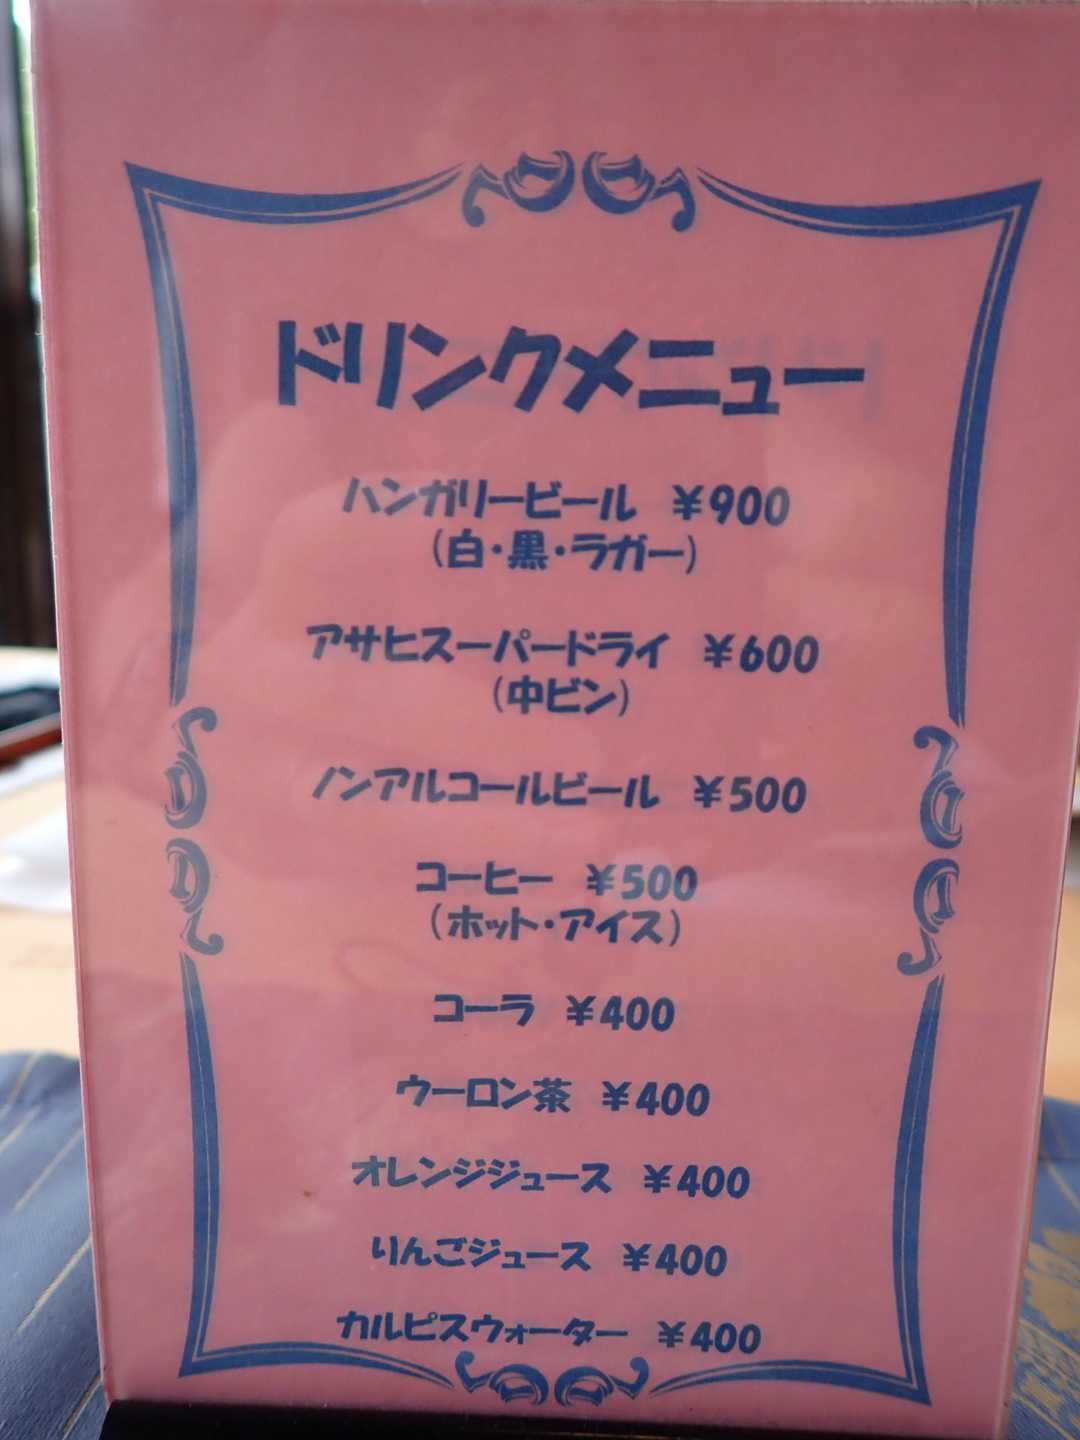 ドリンクメニュー
ハンガリービール ¥900
(白・黒・ラガー)
アサヒスーパードライ ¥600
(中ビン)
ノンアルコールビール ¥500
コーヒー ¥500
(ホット・アイス)
コーラ ¥400
ウーロン茶 ¥400
オレンジジュース ¥400
りんごジュース ¥400
カルピスウォーター ¥400